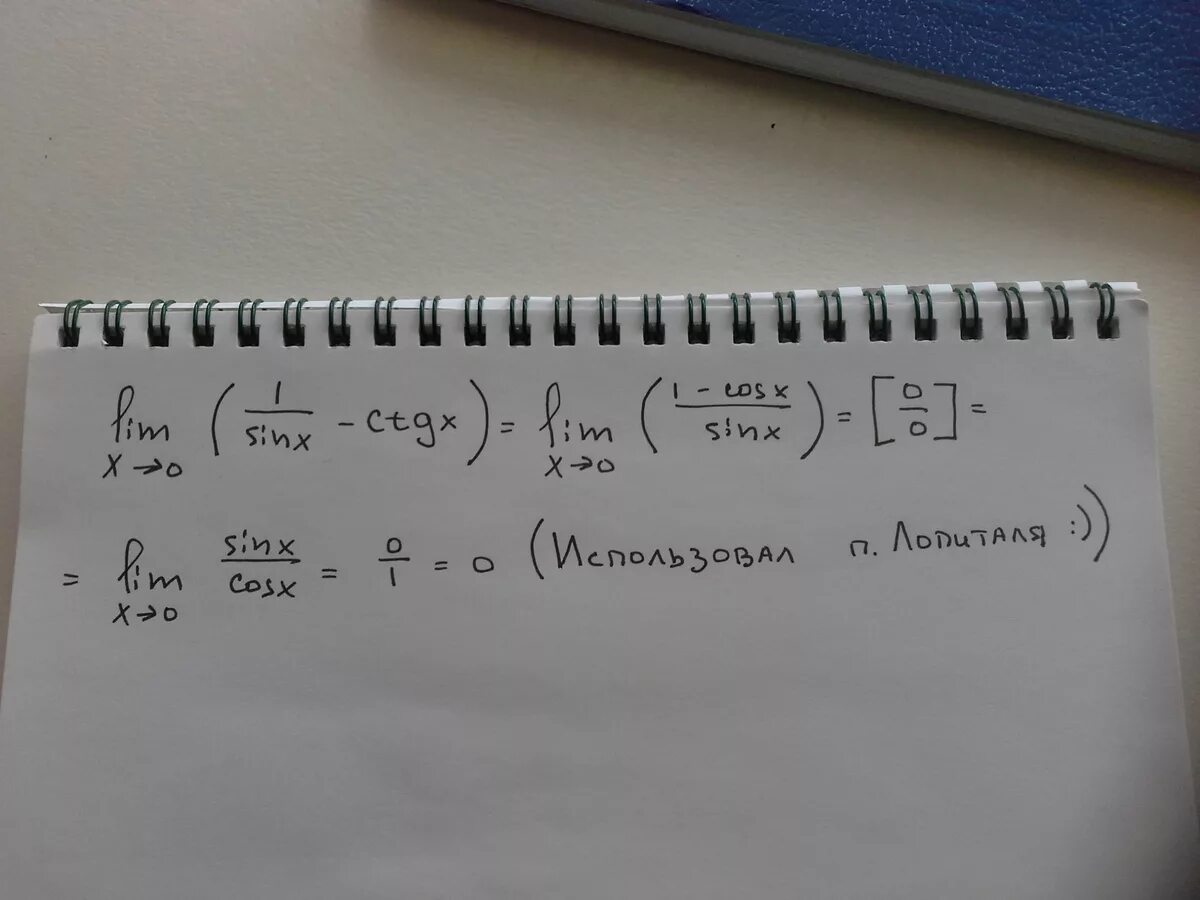 lim x→0 (1/sinx - ctgx) = lim x→0 (1 - cosx / sinx) = [0/0] =
= lim x→0 sinx/cosx = 0/1 = 0 (Использовал п. Лопиталя :))